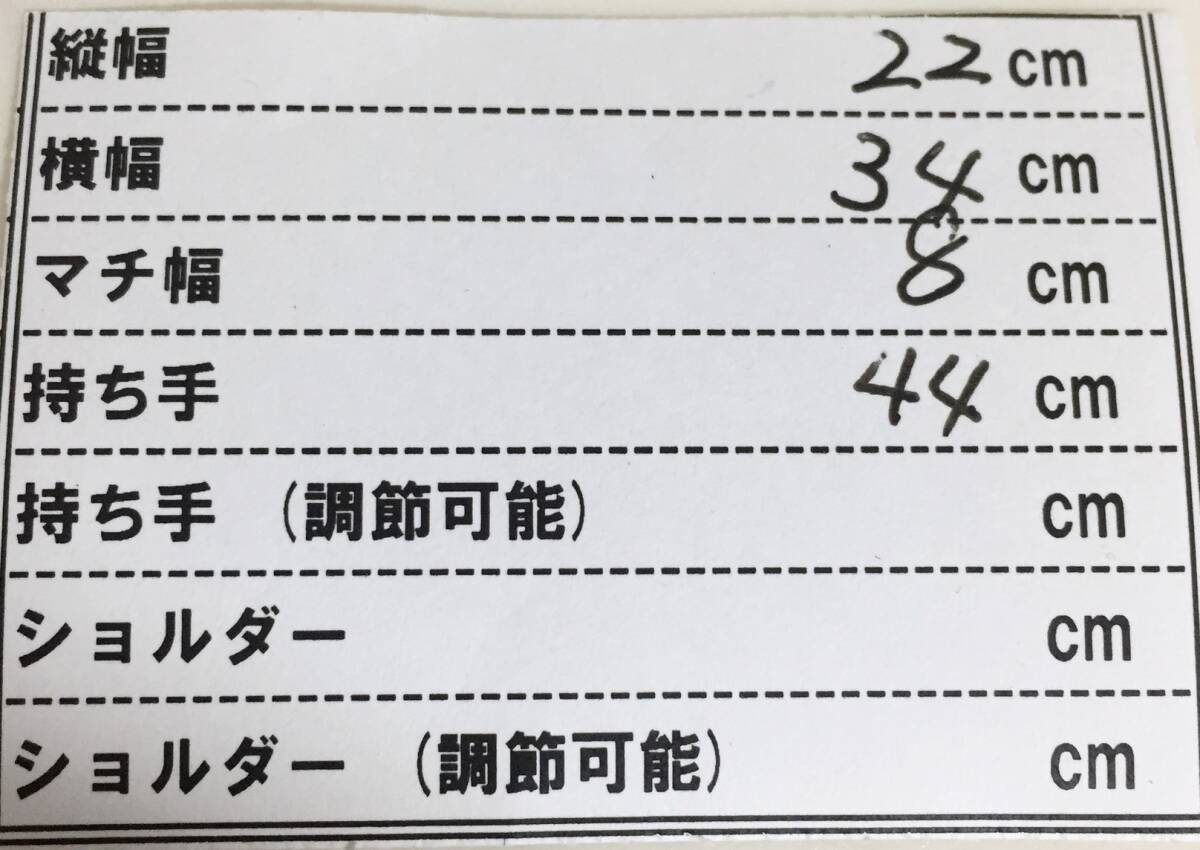 縦幅 22 cm
横幅 34 cm
マチ幅 8 cm
持ち手 44 cm
持ち手 (調節可能) cm
ショルダー cm
ショルダー (調節可能) cm